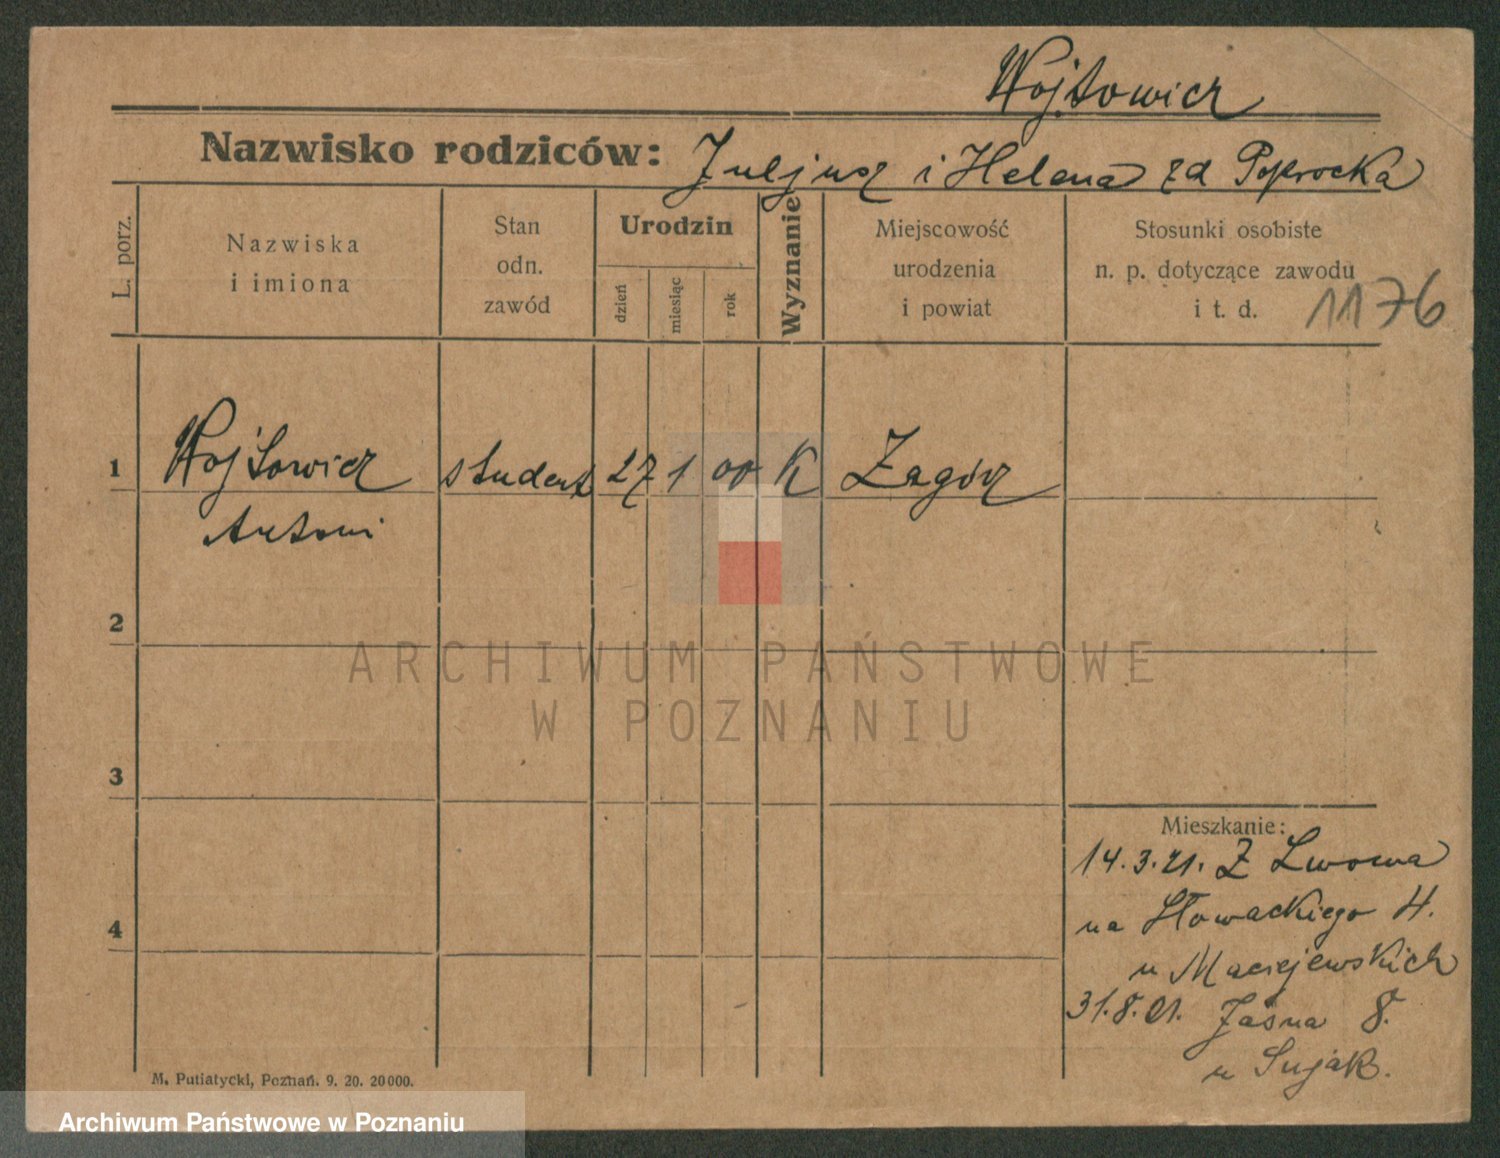 Wojtowicz
Nazwisko rodziców: Juljusz i Helena zd Poprocka
L. porz.
Nazwiska i imiona
Stan odn. zawód
Urodzin
dzień
miesiąc
rok
Wyznanie
Miejscowość urodzenia i powiat
Stosunki osobiste n. p. dotyczące zawodu i t. d.
1176
1 Wojtowicz student 27 1 00 K Zagórz
Antoni
2
3
4
ARCHIWUM PAŃSTWOWE
W POZNANIU
Mieszkanie:
14.3.21. Z Lwowa
na Słowackiego 4.
u Maciejewskich
31.8.21. Jasna 8.
u Sujak.
M. Putiatycki, Poznań. 9. 20. 20000.
Archiwum Państwowe w Poznaniu